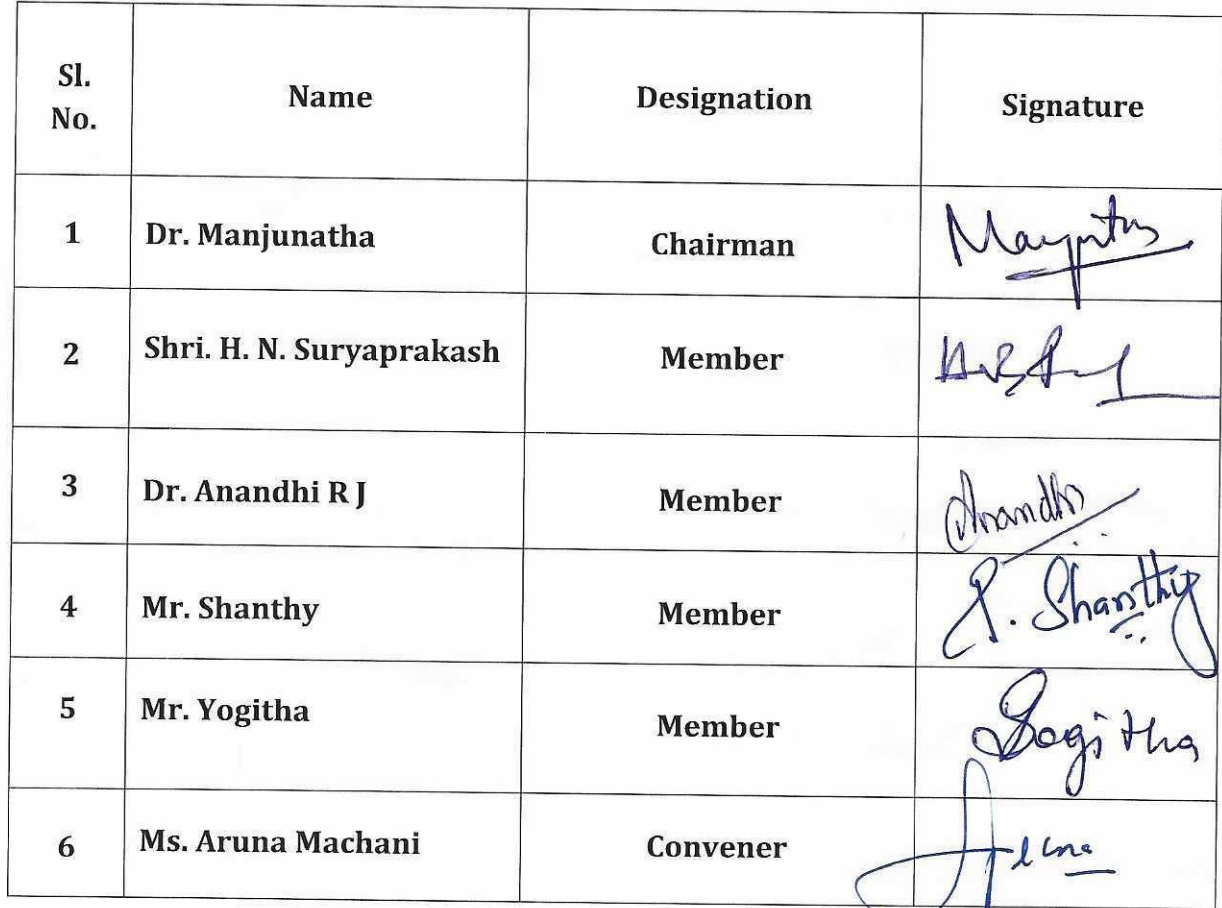 Sl. No. Name Designation Signature
1 Dr. Manjunatha Chairman
2 Shri. H. N. Suryaprakash Member
3 Dr. Anandhi R J Member Anandhi
4 Mr. Shanthy Member P. Shanthy
5 Mr. Yogitha Member Yogitha
6 Ms. Aruna Machani Convener